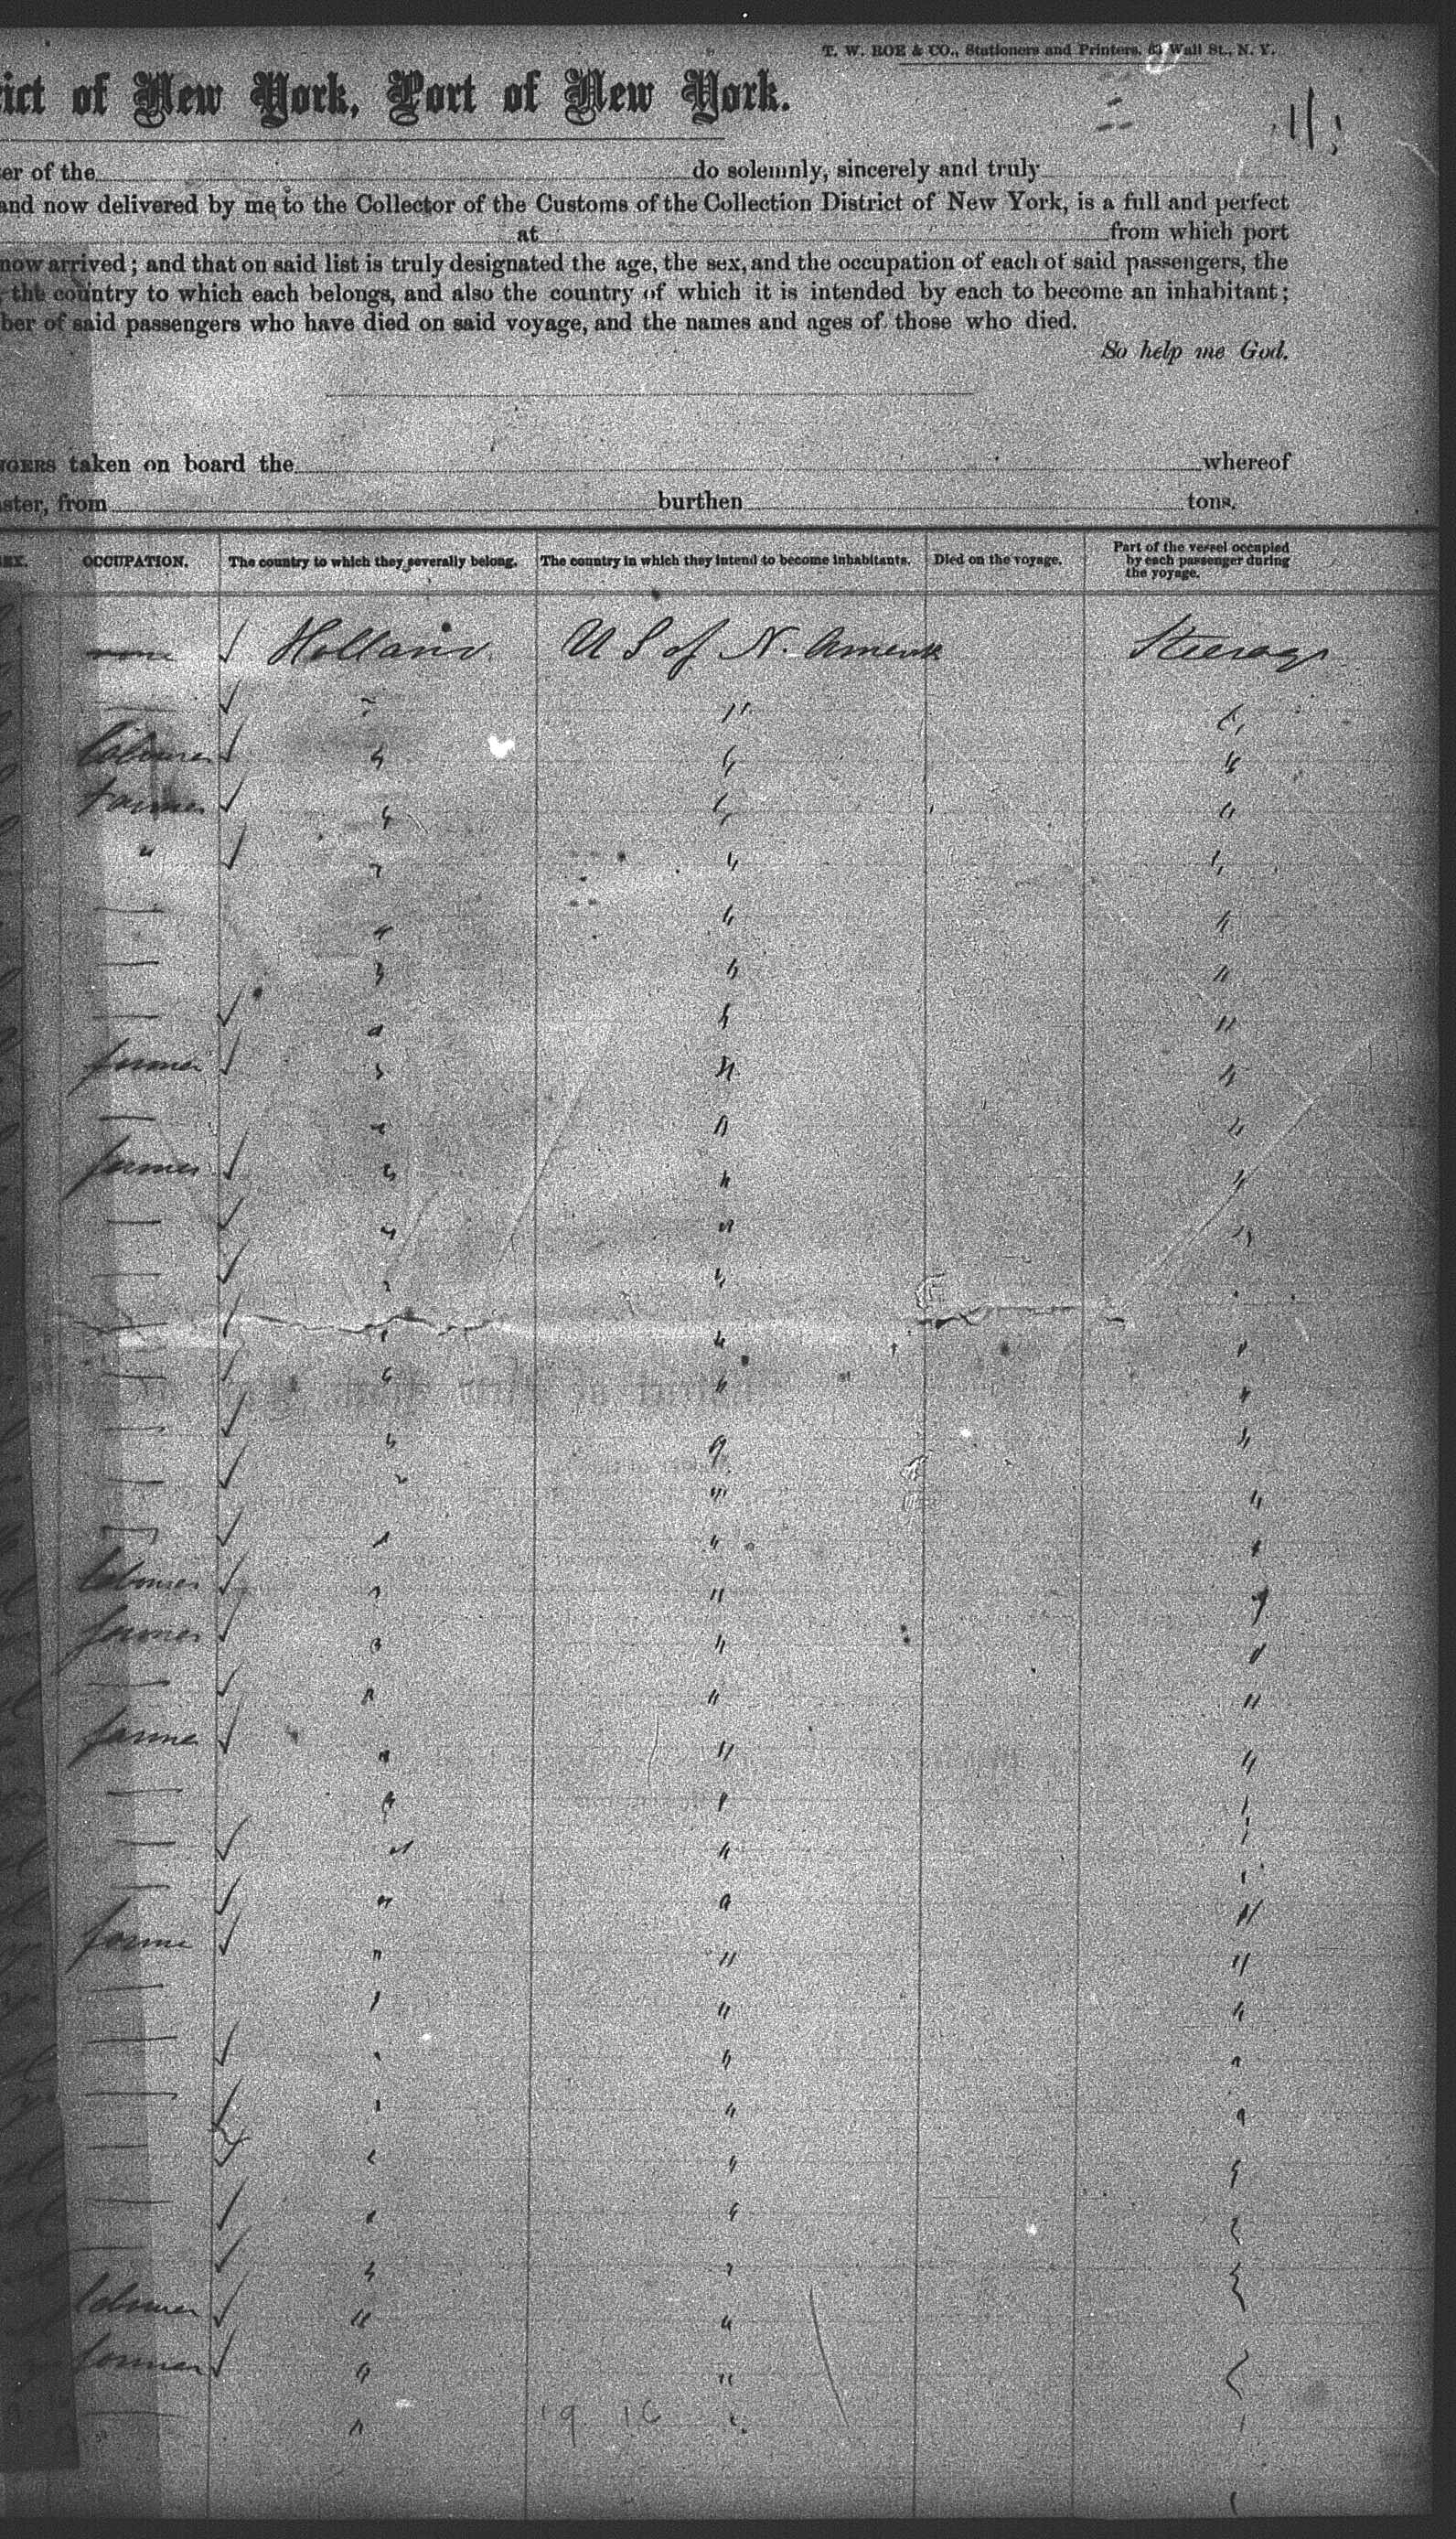 T. W. ROE & CO., Stationers and Printers, 63 Wall St., N. Y.
ict of New York, Port of New York.
er of the do solemnly, sincerely and truly
and now delivered by me to the Collector of the Customs of the Collection District of New York, is a full and perfect
at from which port
now arrived; and that on said list is truly designated the age, the sex, and the occupation of each of said passengers, the
the country to which each belongs, and also the country of which it is intended by each to become an inhabitant;
ber of said passengers who have died on said voyage, and the names and ages of those who died.
So help me God.
NGERS taken on board the whereof
ster, from burthen tons.
EX. OCCUPATION. The country to which they severally belong. The country in which they intend to become inhabitants. Died on the voyage. Part of the vessel occupied
by each passenger during
the voyage.
none Holland U S of N. America Steerage
" " "
labourer " " "
farmer " " "
" " " "
" " "
" " "
" " "
farmer " " "
" " "
farmer " " "
" " "
" "
" " "
" " "
" " "
" " "
" " "
labourer " " "
farmer " " "
" " "
farmer " " "
" " "
" " "
" " "
farmer " " "
" " "
" " "
" " "
" " "
" " "
" " "
labourer " "
farmer " "
" 19 16 "